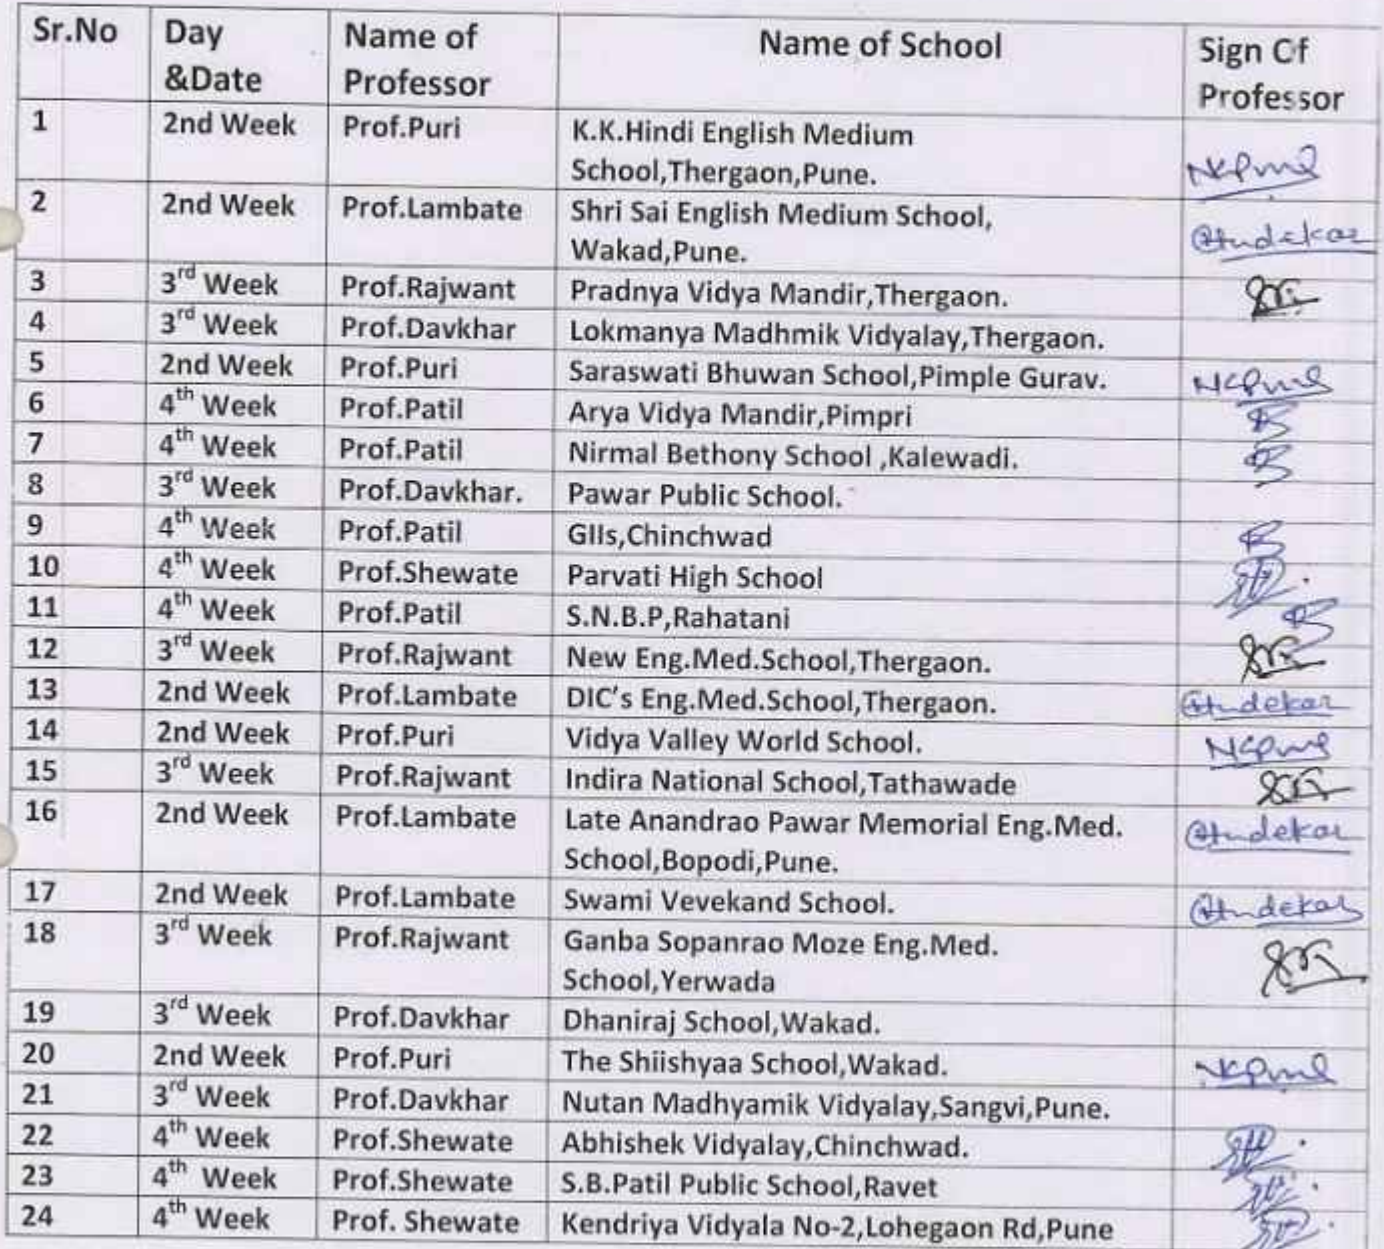 Sr.No Day &Date Name of Professor Name of School Sign Of Professor
1 2nd Week Prof.Puri K.K.Hindi English Medium
School,Thergaon,Pune.
2 2nd Week Prof.Lambate Shri Sai English Medium School,
Wakad,Pune.
3 3rd Week Prof.Rajwant Pradnya Vidya Mandir,Thergaon.
4 3rd Week Prof.Davkhar Lokmanya Madhmik Vidyalay,Thergaon.
5 2nd Week Prof.Puri Saraswati Bhuwan School,Pimple Gurav.
6 4th Week Prof.Patil Arya Vidya Mandir,Pimpri
7 4th Week Prof.Patil Nirmal Bethony School ,Kalewadi.
8 3rd Week Prof.Davkhar. Pawar Public School.
9 4th Week Prof.Patil GIIs,Chinchwad
10 4th Week Prof.Shewate Parvati High School
11 4th Week Prof.Patil S.N.B.P,Rahatani
12 3rd Week Prof.Rajwant New Eng.Med.School,Thergaon.
13 2nd Week Prof.Lambate DIC's Eng.Med.School,Thergaon.
14 2nd Week Prof.Puri Vidya Valley World School.
15 3rd Week Prof.Rajwant Indira National School,Tathawade
16 2nd Week Prof.Lambate Late Anandrao Pawar Memorial Eng.Med.
School,Bopodi,Pune.
17 2nd Week Prof.Lambate Swami Vevekand School.
18 3rd Week Prof.Rajwant Ganba Sopanrao Moze Eng.Med.
School,Yerwada
19 3rd Week Prof.Davkhar Dhaniraj School,Wakad.
20 2nd Week Prof.Puri The Shiishyaa School,Wakad.
21 3rd Week Prof.Davkhar Nutan Madhyamik Vidyalay,Sangvi,Pune.
22 4th Week Prof.Shewate Abhishek Vidyalay,Chinchwad.
23 4th Week Prof.Shewate S.B.Patil Public School,Ravet
24 4th Week Prof. Shewate Kendriya Vidyala No-2,Lohegaon Rd,Pune